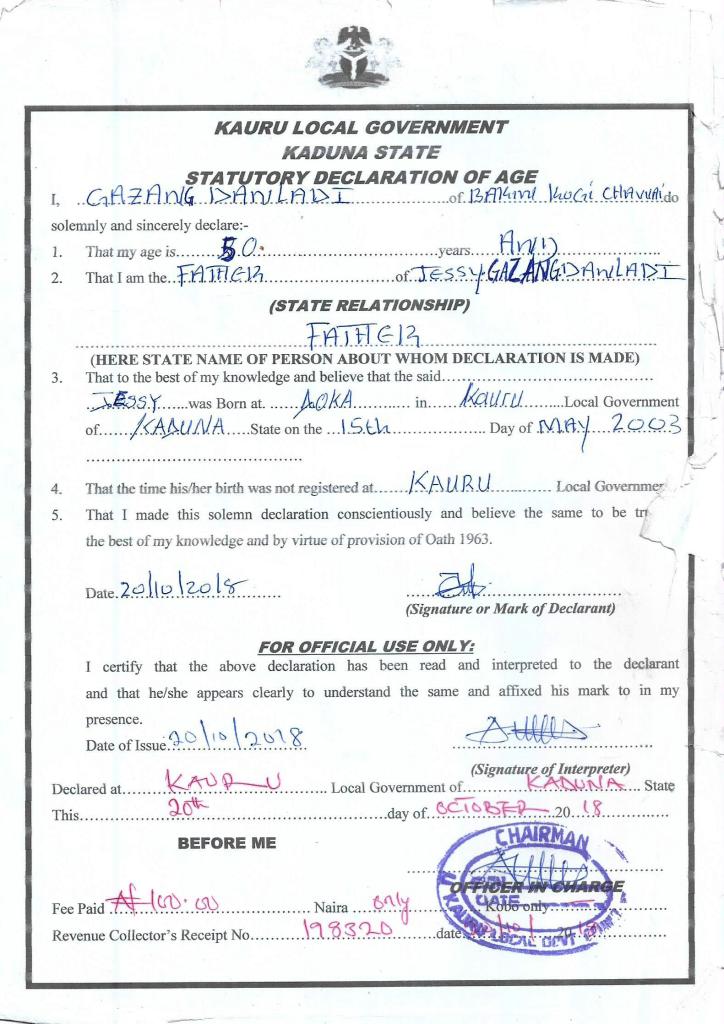 KAURU LOCAL GOVERNMENT
KADUNA STATE
STATUTORY DECLARATION OF AGE
I, ..GAZANG DANLADI.....of BAKIN KOGI CHAWAI do
solemnly and sincerely declare:-
1. That my age is......50.......years. AND
2. That I am the.FATHER......of JESSY GAZANG DANLADI
(STATE RELATIONSHIP)
FATHER
(HERE STATE NAME OF PERSON ABOUT WHOM DECLARATION IS MADE)
3. That to the best of my knowledge and believe that the said......
JESSY......was Born at. AOKA in Kauru Local Government
of KADUNA State on the 15th Day of MAY 2003
4. That the time his/her birth was not registered at KAURU Local Governme
5. That I made this solemn declaration conscientiously and believe the same to be tr
the best of my knowledge and by virtue of provision of Oath 1963.
Date. 20/10/2018
(Signature or Mark of Declarant)
FOR OFFICIAL USE ONLY:
I certify that the above declaration has been read and interpreted to the declarant
and that he/she appears clearly to understand the same and affixed his mark to in my
presence.
Date of Issue 20/10/2018
(Signature of Interpreter)
Declared at KAURU Local Government of KADUNA State
This 20th day of OCTOBER 20 18
BEFORE ME
CHAIRMAN
OFFICER IN CHARGE
Fee Paid ₦ 100.00 Naira only Kobo only
DATE
Revenue Collector's Receipt No. 198320 date 20
KAURU LOCAL GOVT